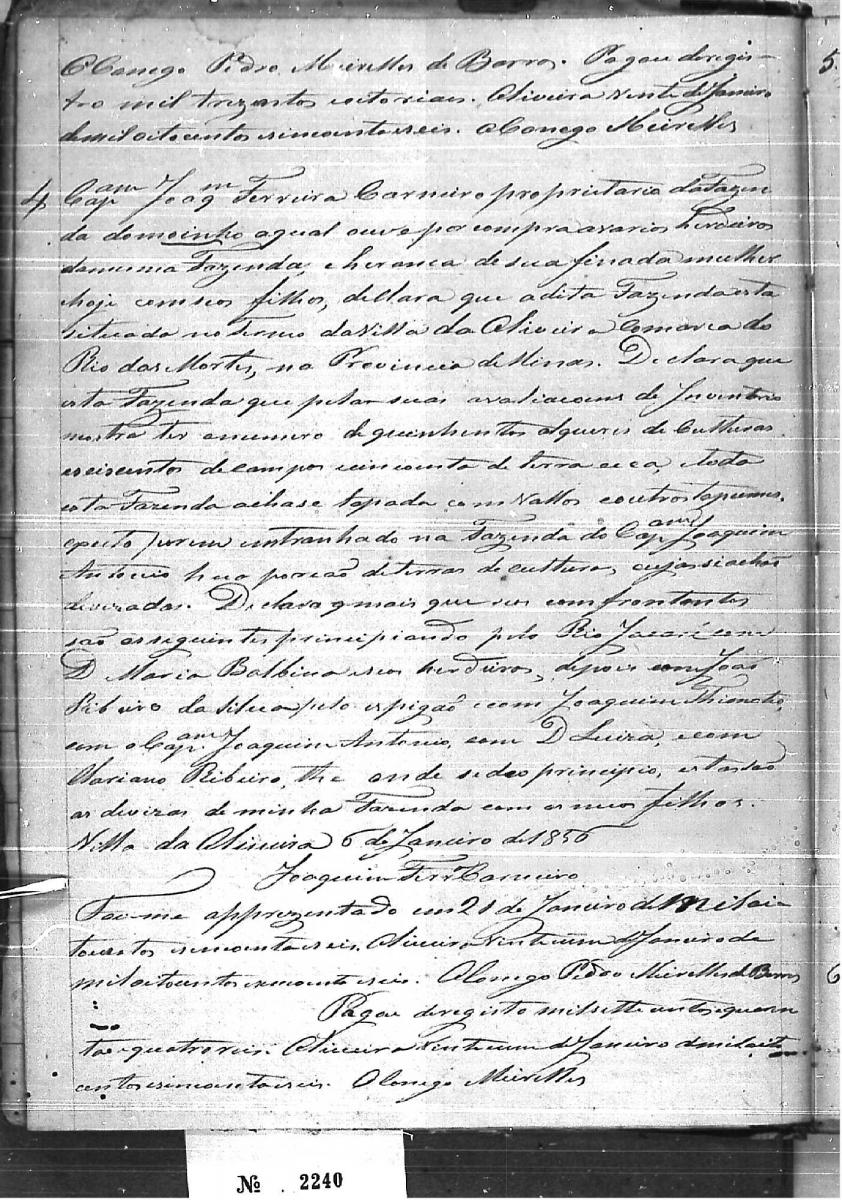 O Conego Pedro Meirelles de Barros. Pagou deregis-
tro mil trezentos eoitoreais. Oliveira vinte deJaneiro
demiloitocentos esincoentaeseis. OConego Meirelles
5
4 Capam Joaqm Ferreira Carneiro proprietario daFazen
da domoinho aqual ouve por compra avarios herdeiros
damesma Fazenda, eherança de sua finada mulher
hoje comseos filhos, declara que adita Fazenda esta
situada notermo daVilla da Oliveira Comarca do
Rio das Mortes, na Provincia deMinas. Declara que
esta Fazenda que pelas suas avaliacoens de Inventrio
mostra ter onumero dequinhentos alqueres de Culturas
eseiscentos decampos esincoenta deterra ceca, etoda
esta Fazenda achase tapada comVallos eoutrostapumes,
epecto porem entranhado na Fazenda do Capam Joaquim
Antonio hua porcaõ deterras decultura, cujas seachaõ
devizadas. Declara mais que seos comfrontantes
saõ osseguintes principiando pelo Rio Jacaré com
D Maria Balbina eseos herdeiros, depois com Joaõ
Ribeiro daSilva pelo espigaõ ecom Joaquim Thimoteo,
com oCapam Joaquim Antonio, com D Luiza, ecom
Mariano Ribeiro, the onde sedeo principio, estassaõ
as devizas de minha Fazenda com osmeos filhos.
Villa da Oliveira 6 deJaneiro de1856
Joaquim Ferra Carneiro
Foi-me apprezentado em 21 de Janeiro de Miloi
tocentos esincoentaeseis. Oliveira vinteeum deJaneiro de
miloitocentos esincoenta eseis. OConego Pedro Meirelles deBarros
6
Pagou deregisto milsettecentos equaren
ta equatroreis. Oliveira vinteeum deJaneiro demiloit
centos esincoentaeseis. OConego Meirelles
No 2240